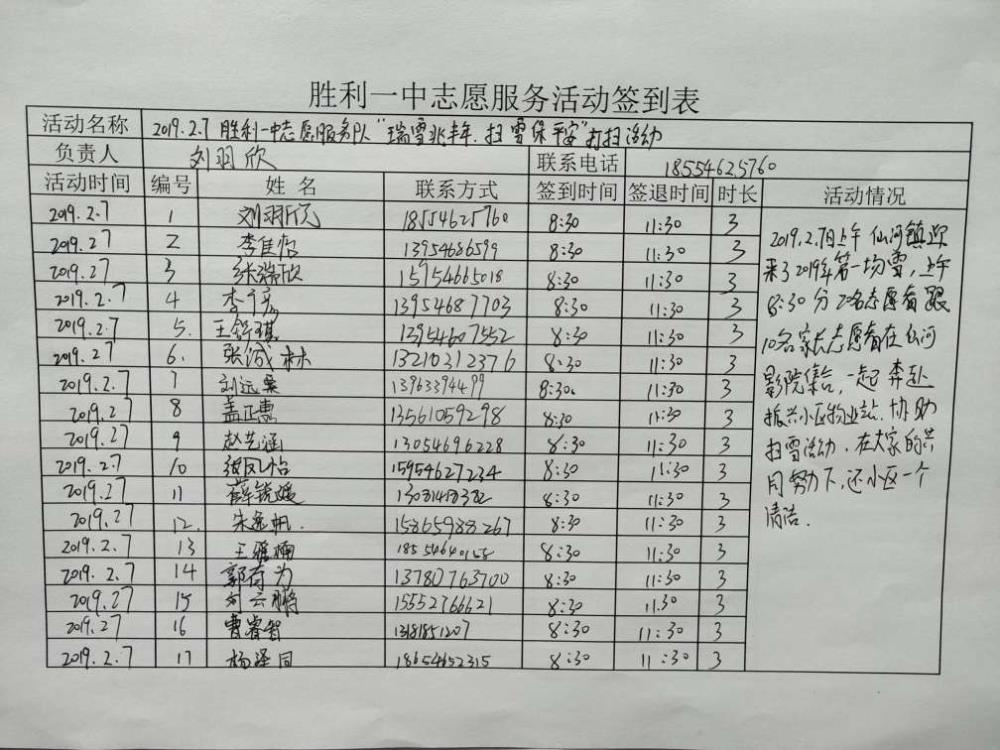 胜利一中志愿服务活动签到表
活动名称 2019.2.7 胜利一中志愿服务队"瑞雪兆丰年.扫雪保平安"打扫活动
负责人 刘羽欣 联系电话 18554625760
活动时间 编号 姓名 联系方式 签到时间 签退时间 时长 活动情况
2019.2.7 1 刘羽欣 18554625760 8:30 11:30 3
2019.2.7 2 李佳怡 13954686599 8:30 11:30 3
2019.2.7 3 张瑞欣 15954665018 8:30 11:30 3
2019.2.7 4 李彦 13954687703 8:30 11:30 3
2019.2.7 5. 王舒琪 13954607552 8:30 11:30 3
2019.2.7 6. 张诚林 13210312376 8:30 11:30 3
2019.2.7 7 刘远 13963394499 8:30 11:30 3
2019.2.7 8 盖正惠 13561059298 8:30 11:30 3
2019.2.7 9 赵艺涵 13054696228 8:30 11:30 3
2019.2.7 10 张凤怡 15954627234 8:30 11:30 3
2019.2.7 11 薛锐媛 8:30 11:30 3
2019.2.7 12. 朱逸帆. 15865988267 8:30 11:30 3
2019.2.7 13 王雅楠 8:30 11:30 3
2019.2.7 14 郭荷为 13780763700 8:30 11:30 3
2019.2.7 15 刘云鹏 15552766621 8:30 11.30 3
2019.2.7 16 曹睿智 13181851207 8:30 11:30 3
2019.2.7 17 杨泽同 18654652315 8:30 11:30 3
2019.2.7日上午 仙河镇迎
来了2019年第一场雪,上午
8:30分 20名志愿者跟
10名家长志愿者在仙河
影院集合,一起奔赴
振兴小区物业站.协助
扫雪活动.在大家的共
同努力下,还小区一个
清洁.